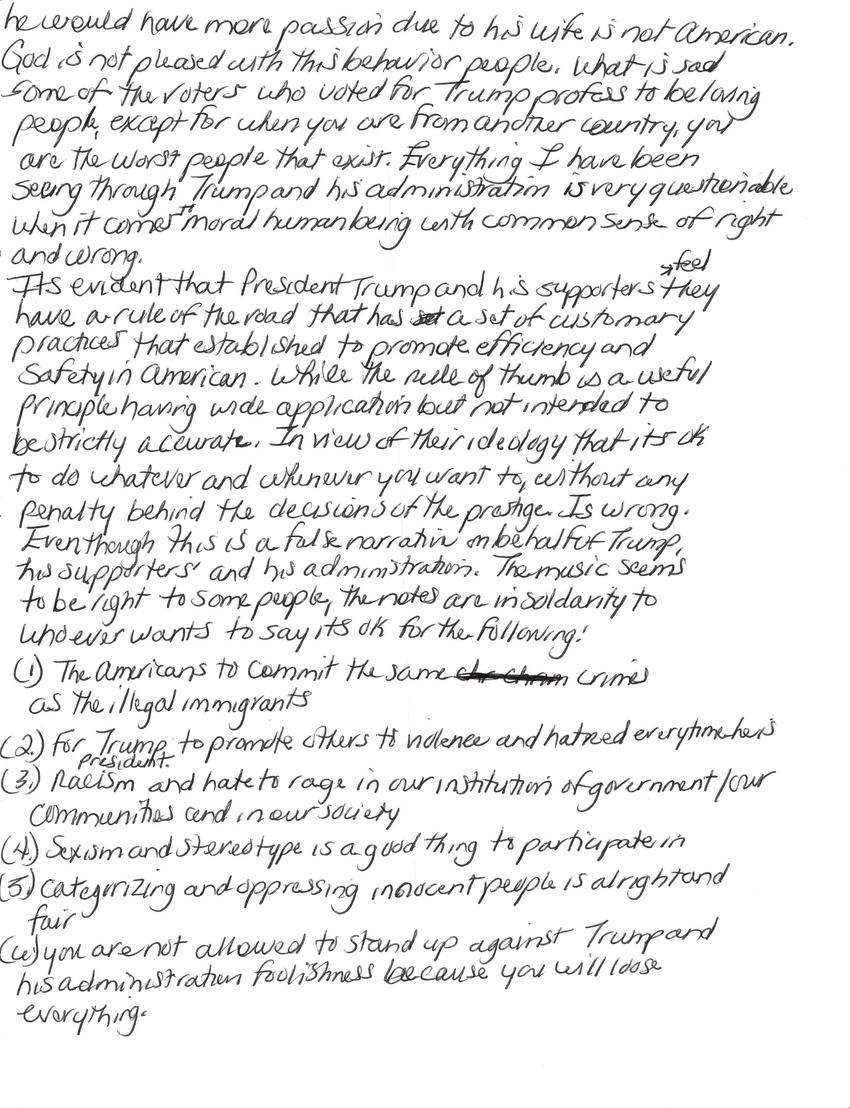 he would have more passion due to his wife is not American.
God is not pleased with this behavior people. What is sad
some of the voters who voted for Trump profess to be loving
people, except for when you are from another country, you
are the worst people that exist. Everything I have been
seeing through Trump and his administration is very questionable
when it comes to moral human being with common sense of right
and wrong.
feel
Its evident that President Trump and his supporters they
have a rule of the road that has a set of customary
practices that established to promote efficiency and
Safety in American. While the rule of thumb is a useful
principle having wide application but not intended to
be strictly accurate. In view of their ideology that its ok
to do whatever and whenever you want to, without any
penalty behind the decisions of the prestige. Is wrong.
Eventhough this is a false narrative on behalf of Trump,
his supporters' and his administration. The music seems
to be right to some people, the notes are in soldarity to
whoever wants to say its ok for the following:
(1) The Americans to commit the same crimes
as the illegal immigrants
(2.) For Trump to promote others to violence and hatred everytime he is
president.
(3.) Racism and hate to rage in our institution of government/our
Communities and in our society
(4.) Sexism and stereotype is a good thing to participate in
(5.) Categorizing and oppressing innocent people is alright and
fair
(6) you are not allowed to stand up against Trump and
his administration foolishness because you will loose
everything.